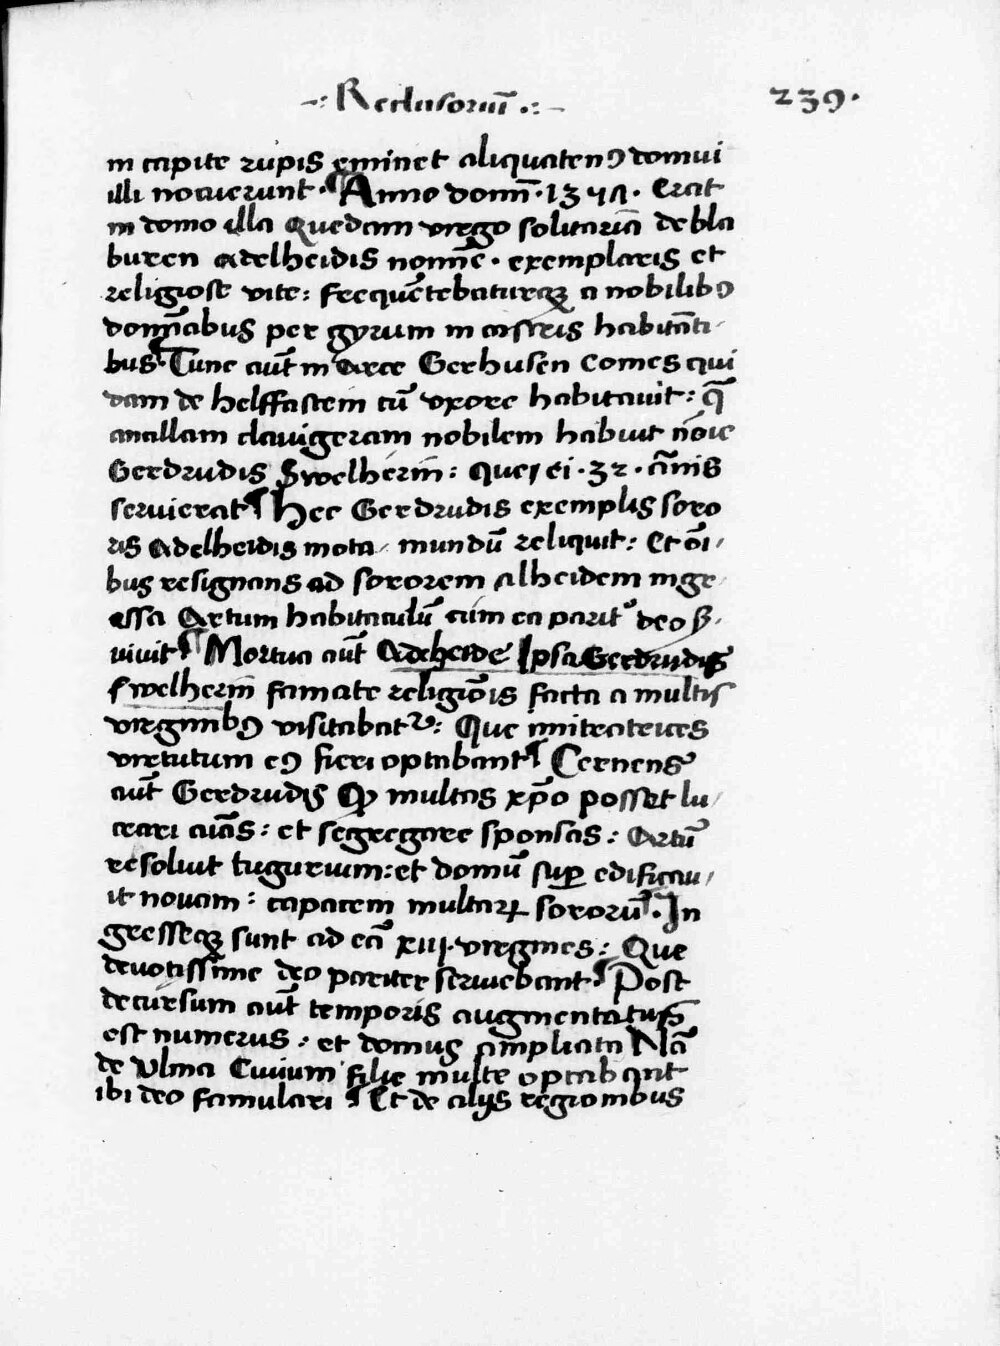 -:Reclusoru̅.:-
239.
in capite rupis eminet aliquatenꝰ domui
illi nocuerunt. ¶ Anno domn̅. 13 Erat
in domo illa Quedam virgo solitaria̅ de bla
buren Adelheidis nomi̅e. exemplaris et
religiose vite: frequēntebaturqꝫ a nobilibꝰ
domi̅abus per gyrum in castris habitānti-
bus. ¶ Tunc aut̅ in Arce Gerhusen Comes qui
dam de helffastein cu̅ vxore habitauit: q̅
ancillam clauigeram nobilem habuit no̅ie
Gerdrudis Swelherin̅: Que ei .32. an̅nis
seruierat ¶ Hec Gerdrudis exemplis soro
ris Adelheidis mota, mundu̅ reliquit: Et o̅i,
bus resignans ad sororem alheidem ingre,
essa Artum habitaculu̅ cum ea parit' deo
vixit ¶ Mortua aut̅ Adeheide Ipsa Gerdrudis
swelherin fama̅te religio̅is facta a multis
virginibꝰ visitabat᷑: Que imitatrices
virtutum eꝰ fieri optabant ¶ Cernens
aut̅ Gerdrudis Qꝫ multas xp̅o posset lu,
crari aīas: et segregare sponsas: Artu̅
resoluit tugurium: et domu̅ suꝑ edificau,
it nouam: capacem multaꝝ sororu̅. In
gresseqꝫ sunt ad ea̅ xiij. virgines: Que
deuotissime deo pariter seruiebant ¶ Post
decursum aut̅ temporis augmentatus
est numerus: et domus ampliata Na̅
de Ulma Ciuium filie multe optabant
ibi deo famulari ¶ Et de alijs regionibus